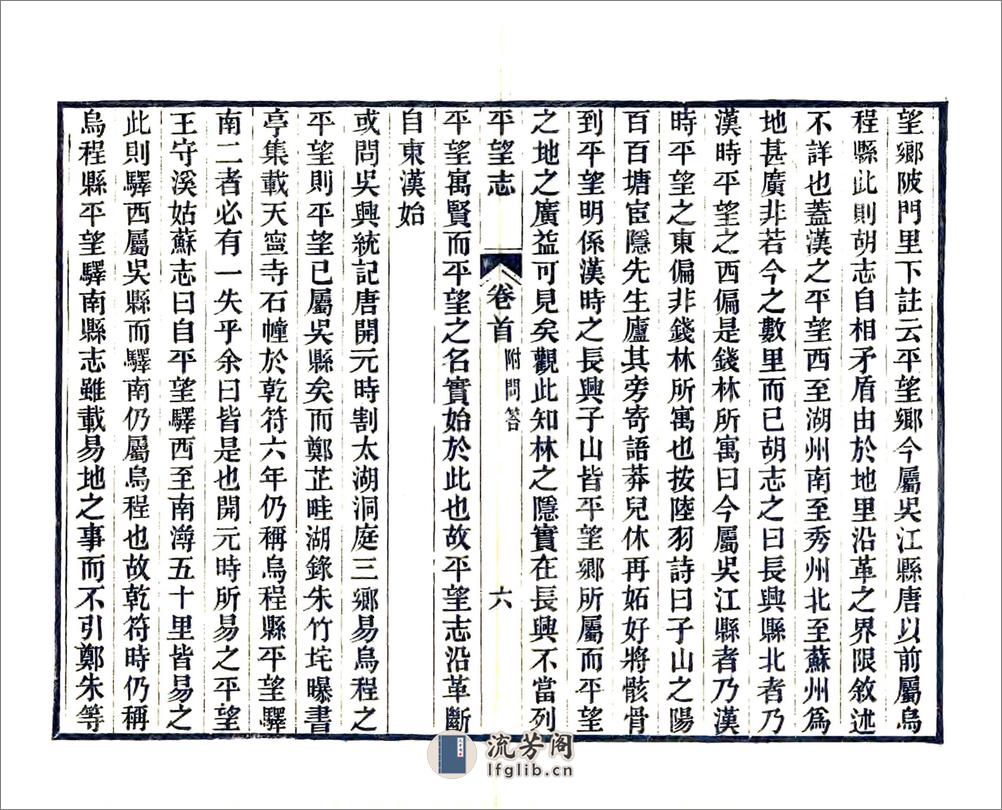 望鄉陂門里下註云平望鄉今屬吳江縣唐以前屬烏
程縣此則胡志自相矛盾由於地里沿革之界限敘述
不詳也蓋漢之平望西至湖州南至秀州北至蘇州爲
地甚廣非若今之數里而已胡志之曰長興縣北者乃
漢時平望之西偏是錢林所寓曰今屬吳江縣者乃漢
時平望之東偏非錢林所寓也按陸羽詩曰子山之陽
百百塘宦隱先生廬其旁寄語莽兒休再妬好將骸骨
到平望明係漢時之長興子山皆平望鄉所屬而平望
之地之廣益可見矣觀此知林之隱實在長興不當列
平望志
卷首
附問答
六
平望寓賢而平望之名實始於此也故平望志沿革斷
自東漢始
或問吳興統記唐開元時割太湖洞庭三鄉易烏程之
平望則平望已屬吳縣矣而鄭芷畦湖錄朱竹垞曝書
亭集載天寧寺石幢於乾符六年仍稱烏程縣平望驛
南二者必有一失乎余曰皆是也開元時所易之平望
王守溪姑蘇志曰自平望驛西至南潯五十里皆易之
此則驛西屬吳縣而驛南仍屬烏程也故乾符時仍稱
烏程縣平望驛南縣志雖載易地之事而不引鄭朱等
流芳阁
lfglib.cn